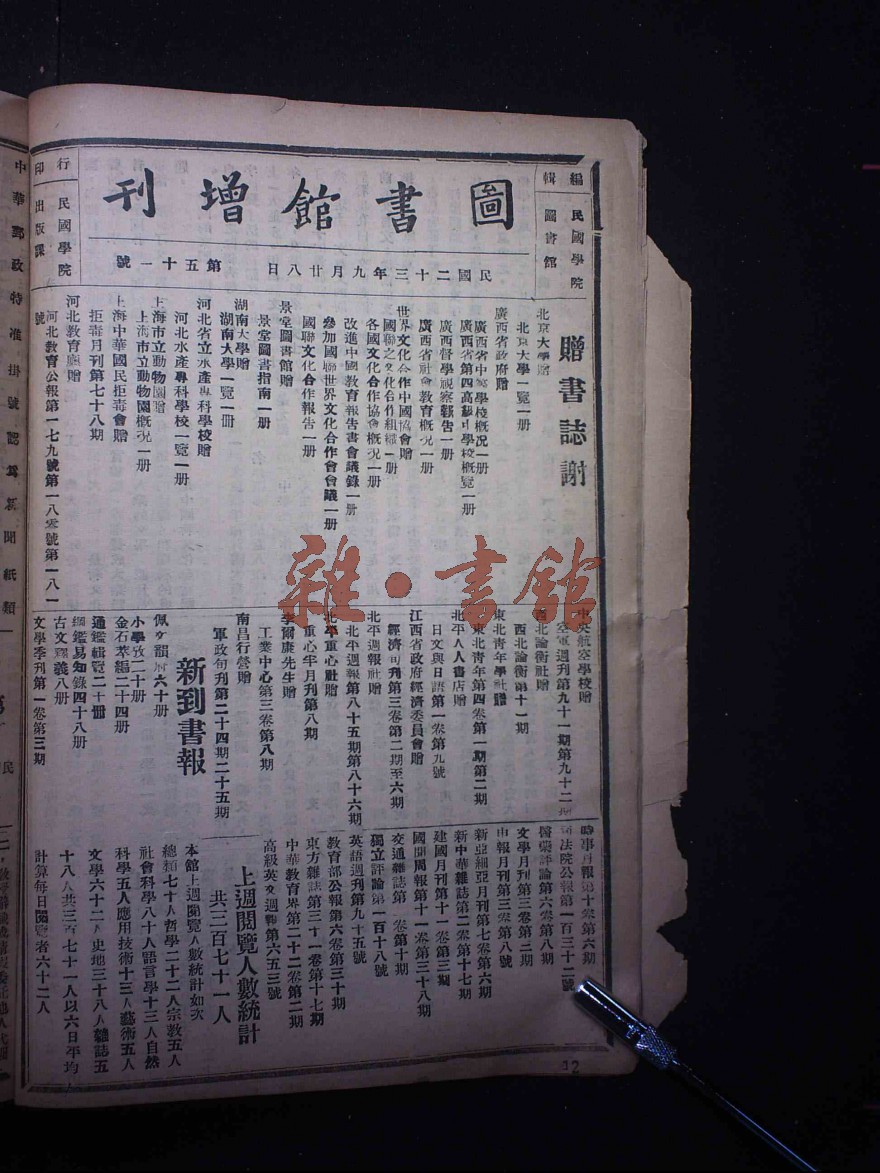 圖書館增刊
編輯 民國學院圖書館
印行 民國學院出版課
民國二十三年九月廿八日 第五十一號
贈書誌謝
北京大學贈
北京大學一覽一册
廣西省政府贈
廣西省中等學校概况一册
廣西省第四高級中學校概覽一册
廣西督學視察報告一册
廣西省社會教育概况一册
世界文化合作中國協會贈
國聯之文化合作組織一册
各國文化合作協會概况一册
改進中國教育報告書會議錄一册
參加國聯世界文化合作會會議一册
國聯文化合作報告一册
景堂圖書館贈
景堂圖書指南一册
湖南大學贈
湖南大學一覽一册
河北省立水產專科學校贈
河北水產專科學校一覽一册
上海市立動物園贈
上海市立動物園概况一册
上海中華國民拒毒會贈
拒毒月刊第七十八期
河北教育廳贈
河北教育公報第一七九號第一八零號第一八一號
中央航空學校贈
空軍週刊第九十一期第九十二期
西北論衡社贈
西北論衡第十一期
東北青年學社贈
東北青年第四卷第一期第二期
北平人人書店贈
日文與日語第一卷第九號
江西省政府經濟委員會贈
經濟旬刊第三卷第二期至六期
北平週報社贈
北平週報第八十五期第八十六期
北平重心社贈
重心半月刊第八期
李爾康先生贈
工業中心第三卷第八期
南昌行營贈
軍政旬刊第二十四期二十五期
新到書報
佩文韻府六十册
小學攷二十册
金石萃編二十四册
通鑑輯覽二十册
綱鑑易知錄四十八册
古文釋義八册
文學季刊第一卷第三期
時事月報第十卷第六期
司法院公報第一百三十二號
醫藥評論第六卷第八期
文學月刊第三卷第二期
申報月刊第三卷第八號
新亞細亞月刊第七卷第六期
新中華雜誌第二卷第十七期
建國月刊第十一卷第三期
國聞周報第十一卷第三十八期
交通雜誌第二卷第十期
獨立評論第一百十八號
英語週刊第九十五號
教育部公報第六卷第三十期
東方雜誌第三十一卷第十七期
中華教育界第二十二卷第二期
高級英文週報第六五三號
上週閱覽人數統計
共三百七十一人
本館上週閱覽人數統計如次
總類七十人哲學二十二人宗教五人
社會科學八十人語言學十三人自然
科學五人應用技術十三人藝術五人
文學六十二人史地三十八人雜誌五
十八人共三百七十一人以六日平均
計算每日閱覽者六十二人
中華郵政特准掛號認爲新聞紙類
雜·書館
12